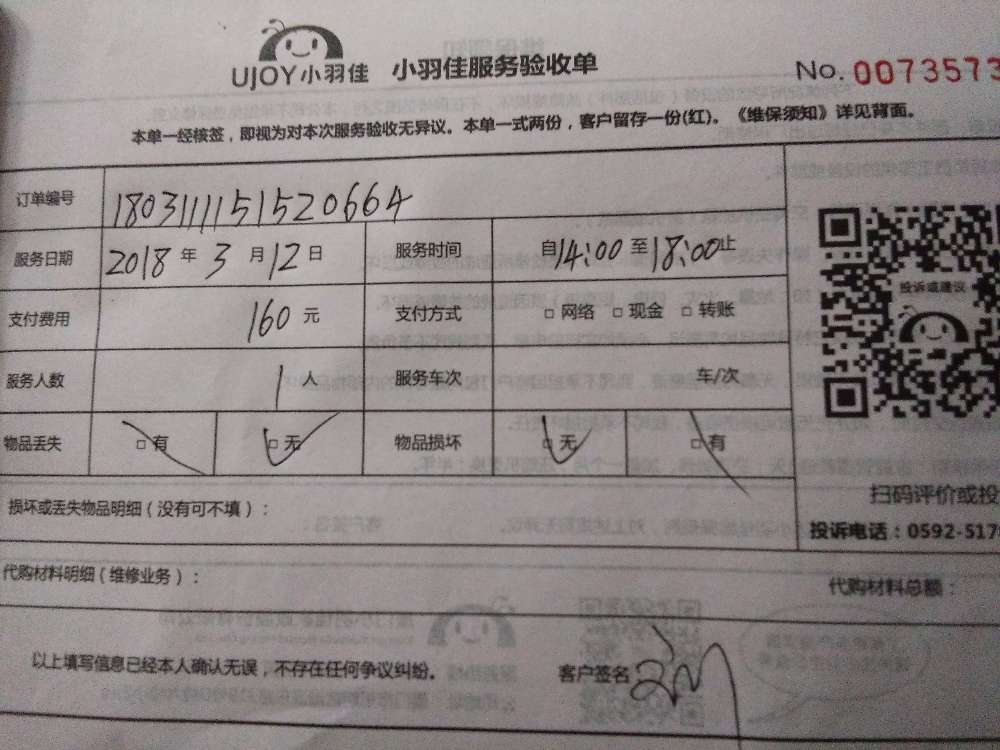 UJOY小羽佳 小羽佳服务验收单 No. 0073573
本单一经核签，即视为对本次服务验收无异议。本单一式两份，客户留存一份(红)。《维保须知》详见背面。
订单编号 1803111151520664
服务日期 2018 年 3 月 12 日 服务时间 自14:00 至 18:00止
支付费用 160 元 支付方式 □ 网络 □ 现金 □ 转账
服务人数 1 人 服务车次 车/次
物品丢失 □ 有 □ 无 物品损坏 □ 无 □ 有
投诉或建议
扫码评价或投
损坏或丢失物品明细（没有可不填）：
投诉电话：0592-517
代购材料明细（维修业务）： 代购材料总额：
以上填写信息已经本人确认无误，不存在任何争议纠纷。 客户签名